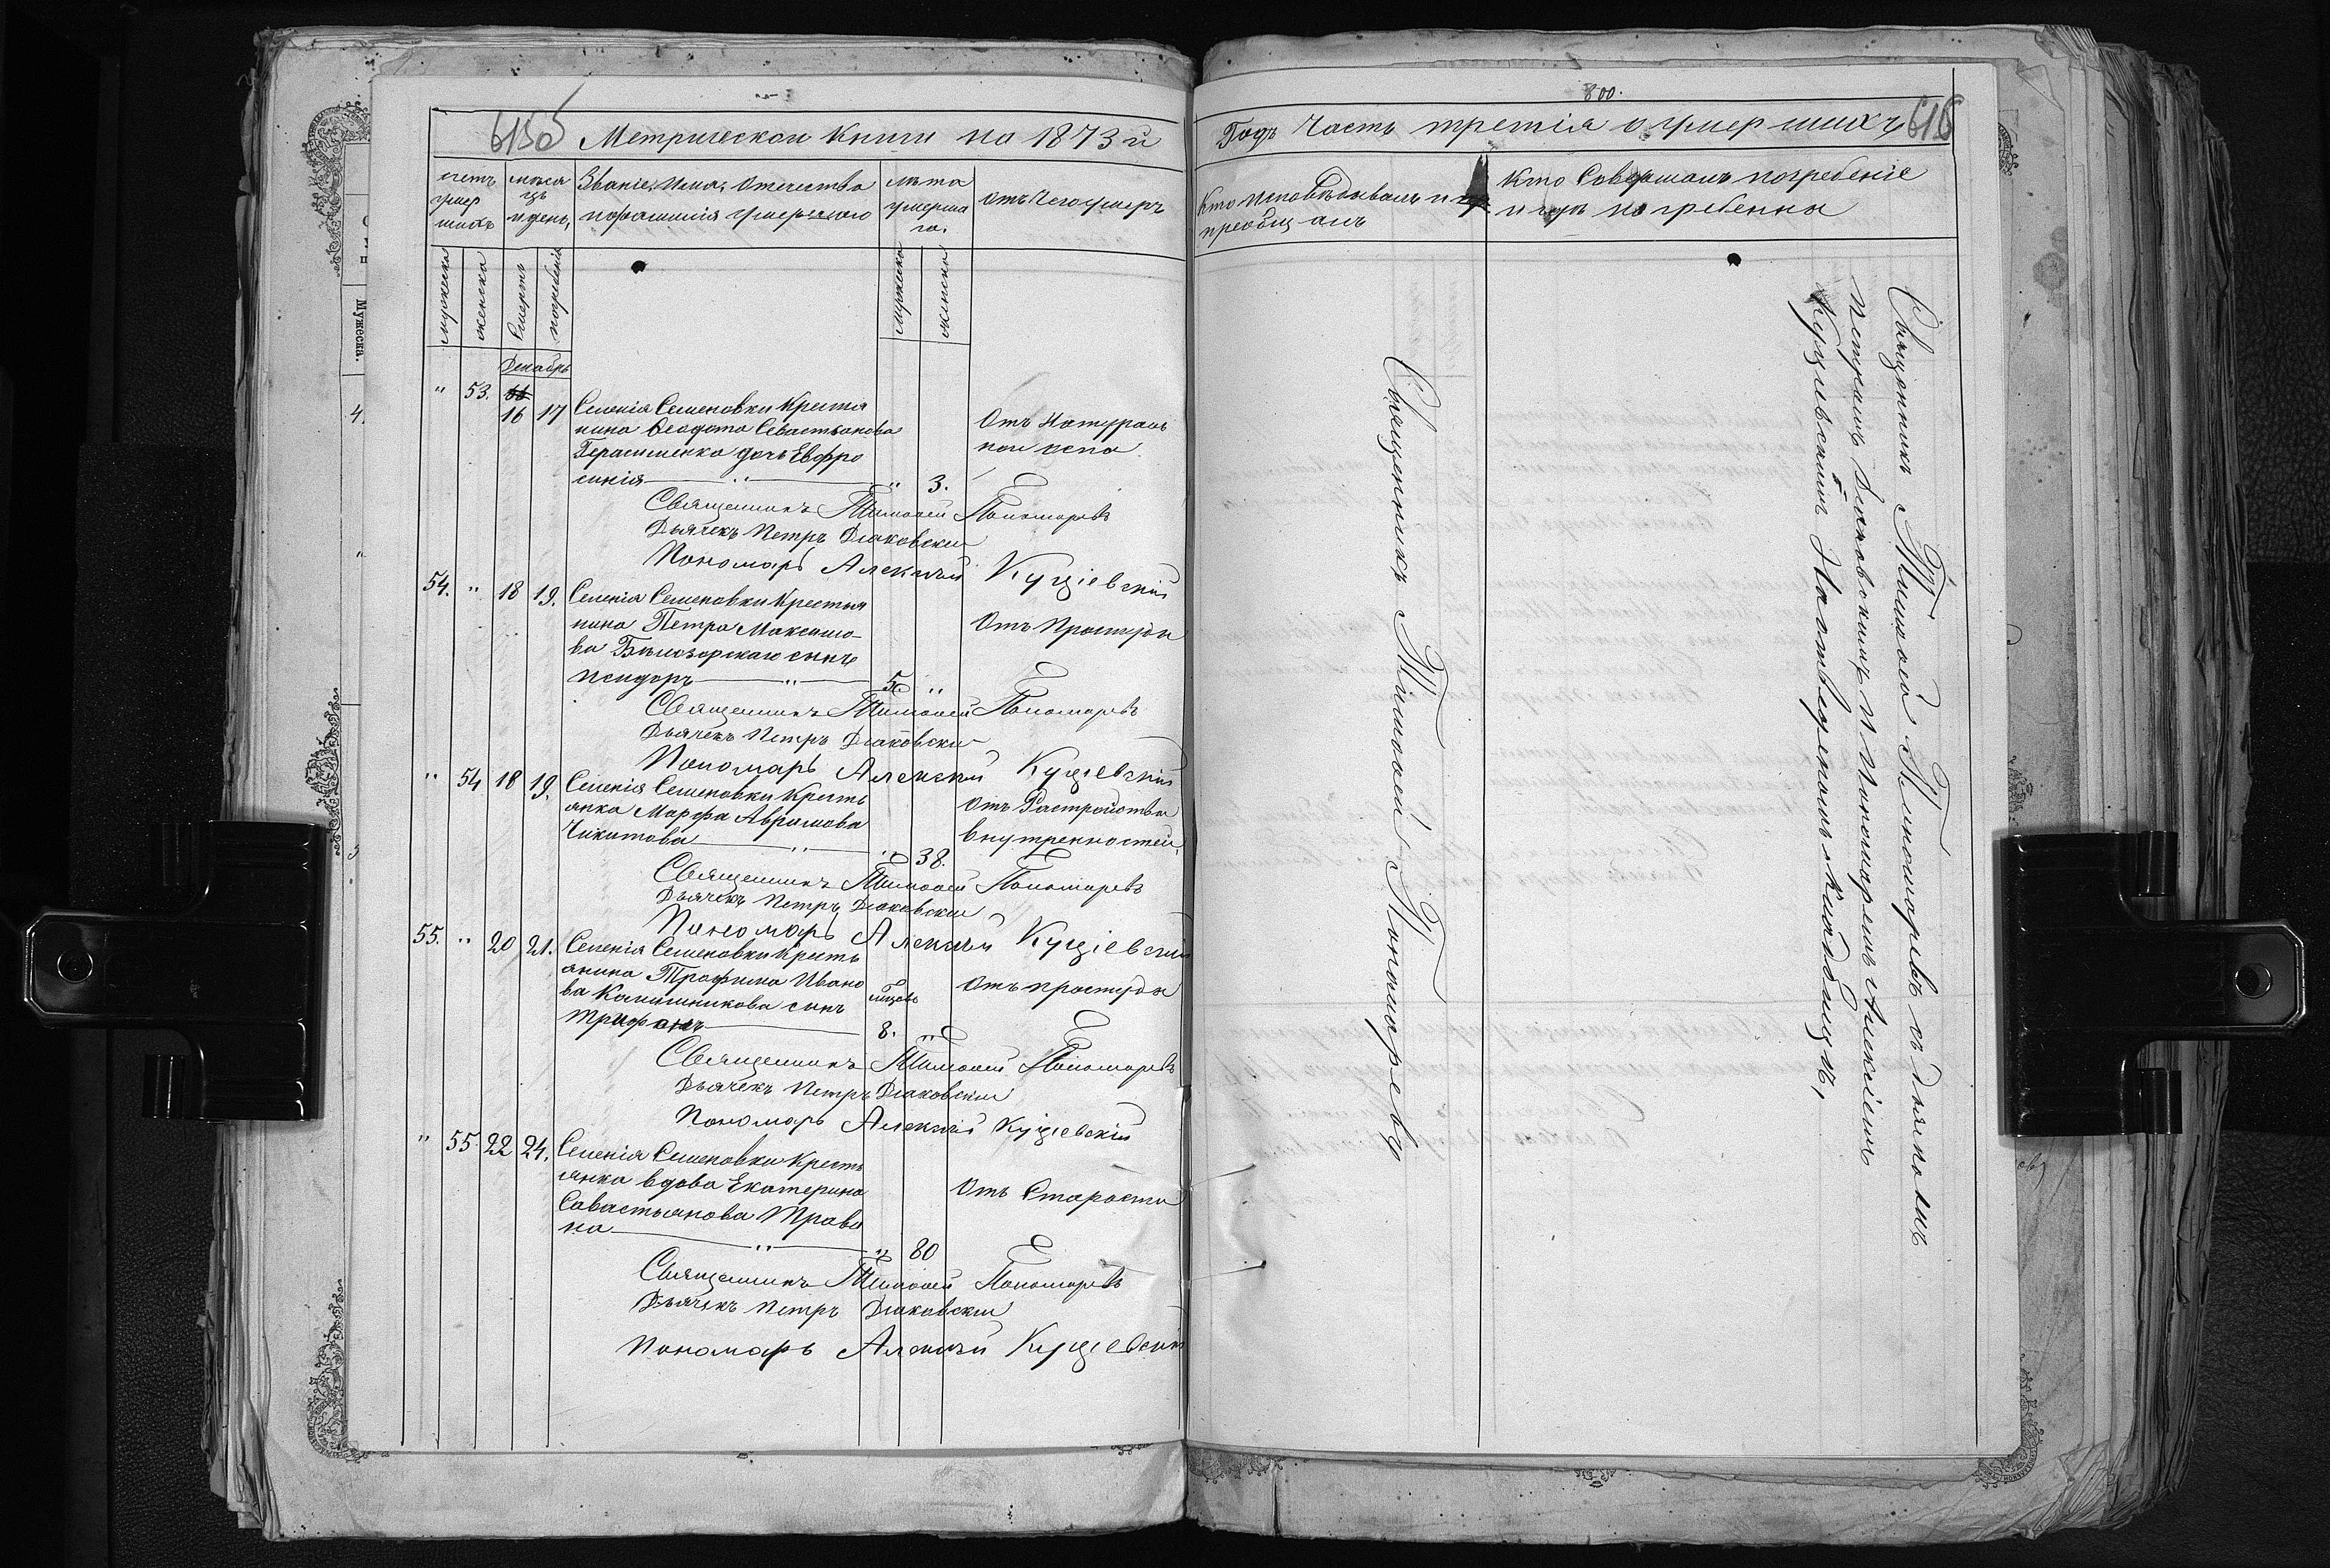 Метрической книги на 1873 й
счетъ умер шихъ
меся цъ и день,
Званіе, имя, отечество
и фамилія умершаго
лѣта умерша го.
отъ чего умеръ
мужеска
женска
смерть
погребеніе
мужеска
женска
Декабрь
" 53. 16 17
Селенія Семеновки крестья
нина Феодота Севастьянова
Герасименко дочь Евфро
синія " " 3.
Отъ натураль
ной оспы
Священникъ Тимофей Пономаревъ
Дьячекъ Петръ Дьяковскій
Пономарь Алексѣй Куціевскій
54. " 18 19.
Селенія Семеновки крестья
нина Петра Максимо-
ва Бѣлозорскаго сынъ
Исидоръ " 5 "
Отъ простуды
Священникъ Тимофей Пономаревъ
Дьячекъ Петръ Дьяковскій
Пономарь Алексѣй Куціевскій
" 54 18 19.
Селенія Семеновки кресть
янка Марфа Аврамова
Чикитова " " 38.
Отъ растройства
внутренностей,
Священникъ Тимофей Пономаревъ
Дьячекъ Петръ Дьяковскій
Пономарь Алексѣй Куціевскій
55. " 20 21.
Селенія Семеновки кресть
янина Трофима Ивано
ва Калашникова сынъ
Трифонъ 8. "
Отъ простуды
Священникъ Тимофей Пономаревъ
Дьячекъ Петръ Дьяковскій
Пономарь Алексѣй Куціевскій
" 55 22 24.
Селенія Семеновки кресть
янка вдова Екатерина
Савастьянова Травя
на " " 80
Отъ старости
Священникъ Тимофей Пономаревъ
Дьячекъ Петръ Дьяковскій
Пономарь Алексѣй Куціевскій
800.
Годъ часть третія о умершихъ 616
Кто исповѣдывалъ и
пріобщалъ
Кто совершалъ погребеніе
и гдѣ погребены
Священникъ Тимофей Пономаревъ
Священникъ Тимофей Пономаревъ съ дьячкомъ
Петромъ Дьяковскимъ и Пономаремъ Алексіемъ
Куціевскимъ На отведенномъ кладбищѣ,